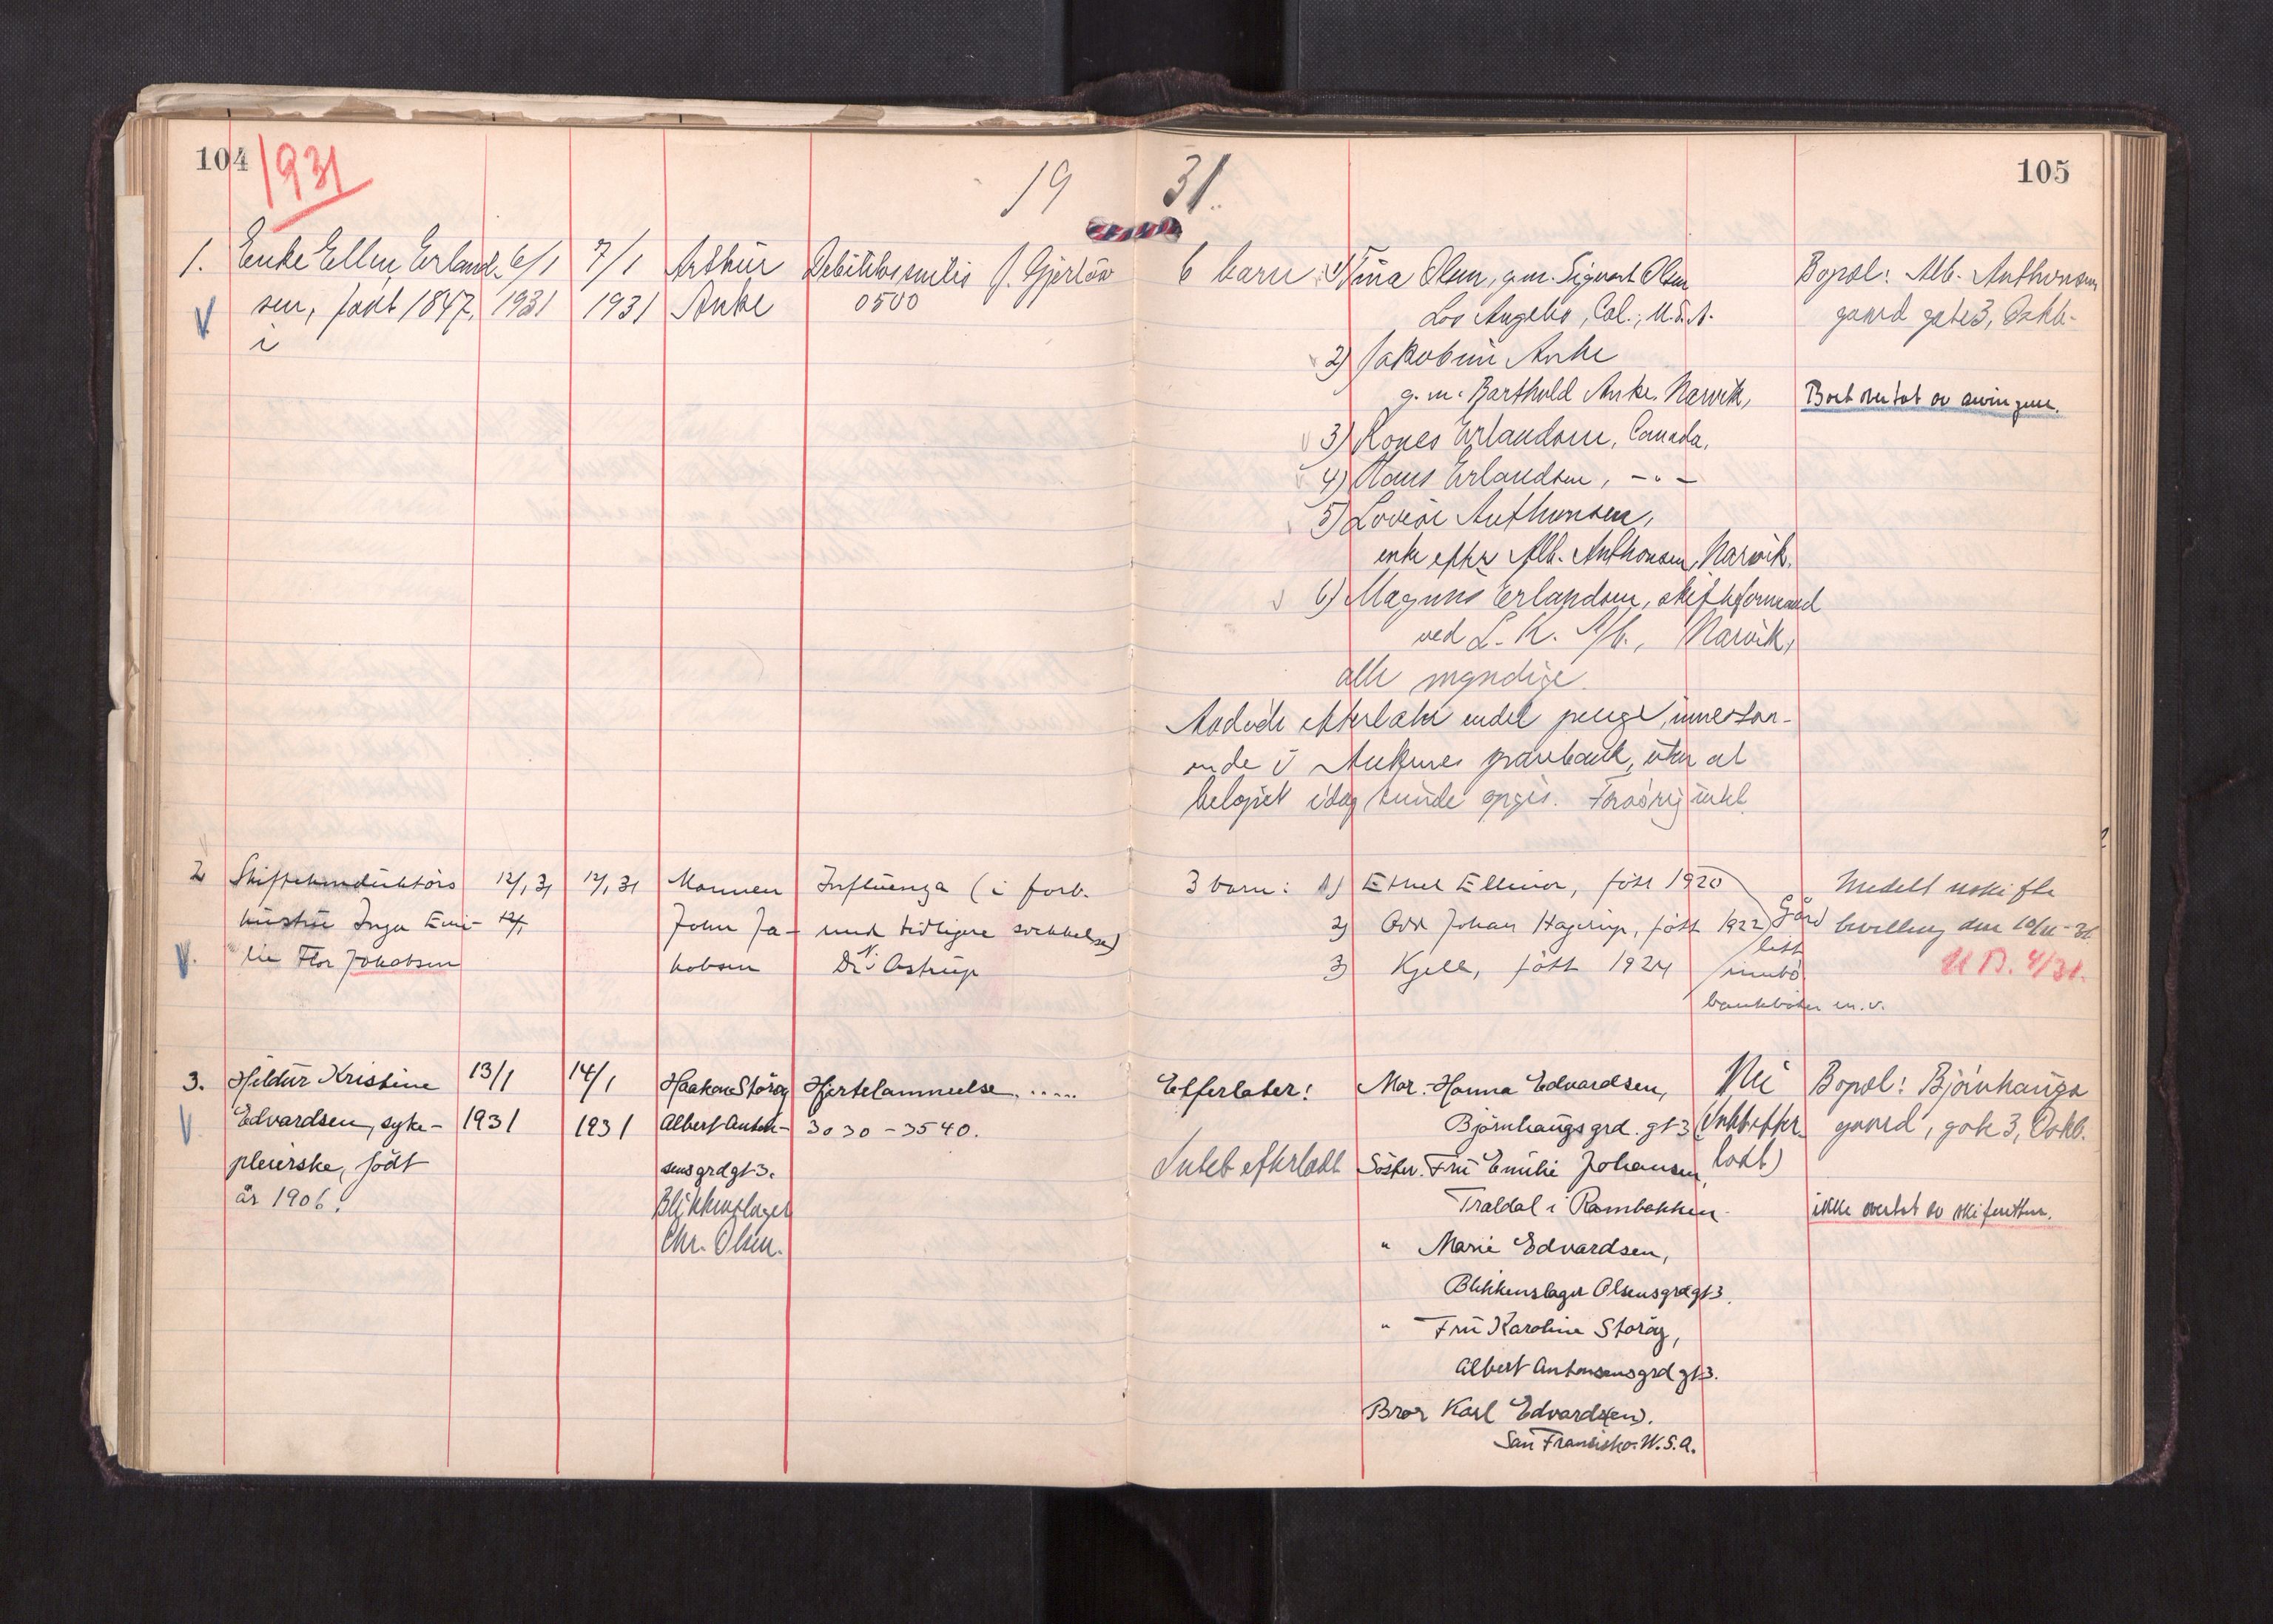 104
1931
19 31.
105
1. Enke Ellen Erland- 6/1 7/1 Arthur Debilitas senilis J. Gjerlöw 6 barn: 1) Tina Olsen, g.m. Sigvart Olsen Bopæl: Alb. Anthonsen
sen, født 1847, 1931 1931 Anke 0500 Los Angeles, Cal., U.S.A. gaard gate 3, Oskb.
2) Jakobine Anke
g.m. Barthold Anke, Narvik, Boet overtat av arvingene.
3) Erlandsen, Canada,
4) Hans Erlandsen, -"-
5) Lovise Anthonsen,
enke efter Alb. Anthonsen, Narvik.
6) Magnus Erlandsen, skifteformand
ved L.K. A/b., Narvik,
alle myndige.
Avdøde efterlater endel penge, innestaa-
ende i Ankenes sparebank, uten at
beløpet idag kunde opgis.
2 12/1 31 12/1 31 Mannen Influenza (i forb. 3 barn: 1) Ethel Ellinor, född 1920 Meddelt uskifte
hustru Inga Emi- 12/1 John Ja- med tidligere svekkelse) 2) Odd Johan Hagerup, född 1922 Gård bevilling den 10/11-31
lie Flor Jakobsen kobsen Dr. N. Astrup 3) Kjell, född 1924 litt innbo U.B. 4/31.
bankbøker m.v.
3. Hildur Kristine 13/1 14/1 Haakon Storøy Hjertelammelse..... Efterlater: Mor. Hanna Edvardsen, Nei Bopæl: Bjørnhaugs
Edvardsen, syke- 1931 1931 Albert Anton- 3030-3540. Bjørnhaugs grd. gt 3 (Intet efter- gaard, gate 3, Oskb.
pleierske, född sens grd gt 3. Intet efterlatt Söster. Fru Emilie Johansen, latt)
år 1906. Blikkenslager Traldal i Rombakken ikke overtat av skifteretten.
Chr. Olsen. " Marie Edvardsen,
Blikkenslager Olsens grd gt 3.
" Fru Karoline Storøy,
Albert Antonsens grd gt 3.
Bror Karl Edvards(en).
San Fransisko. U.S.A.